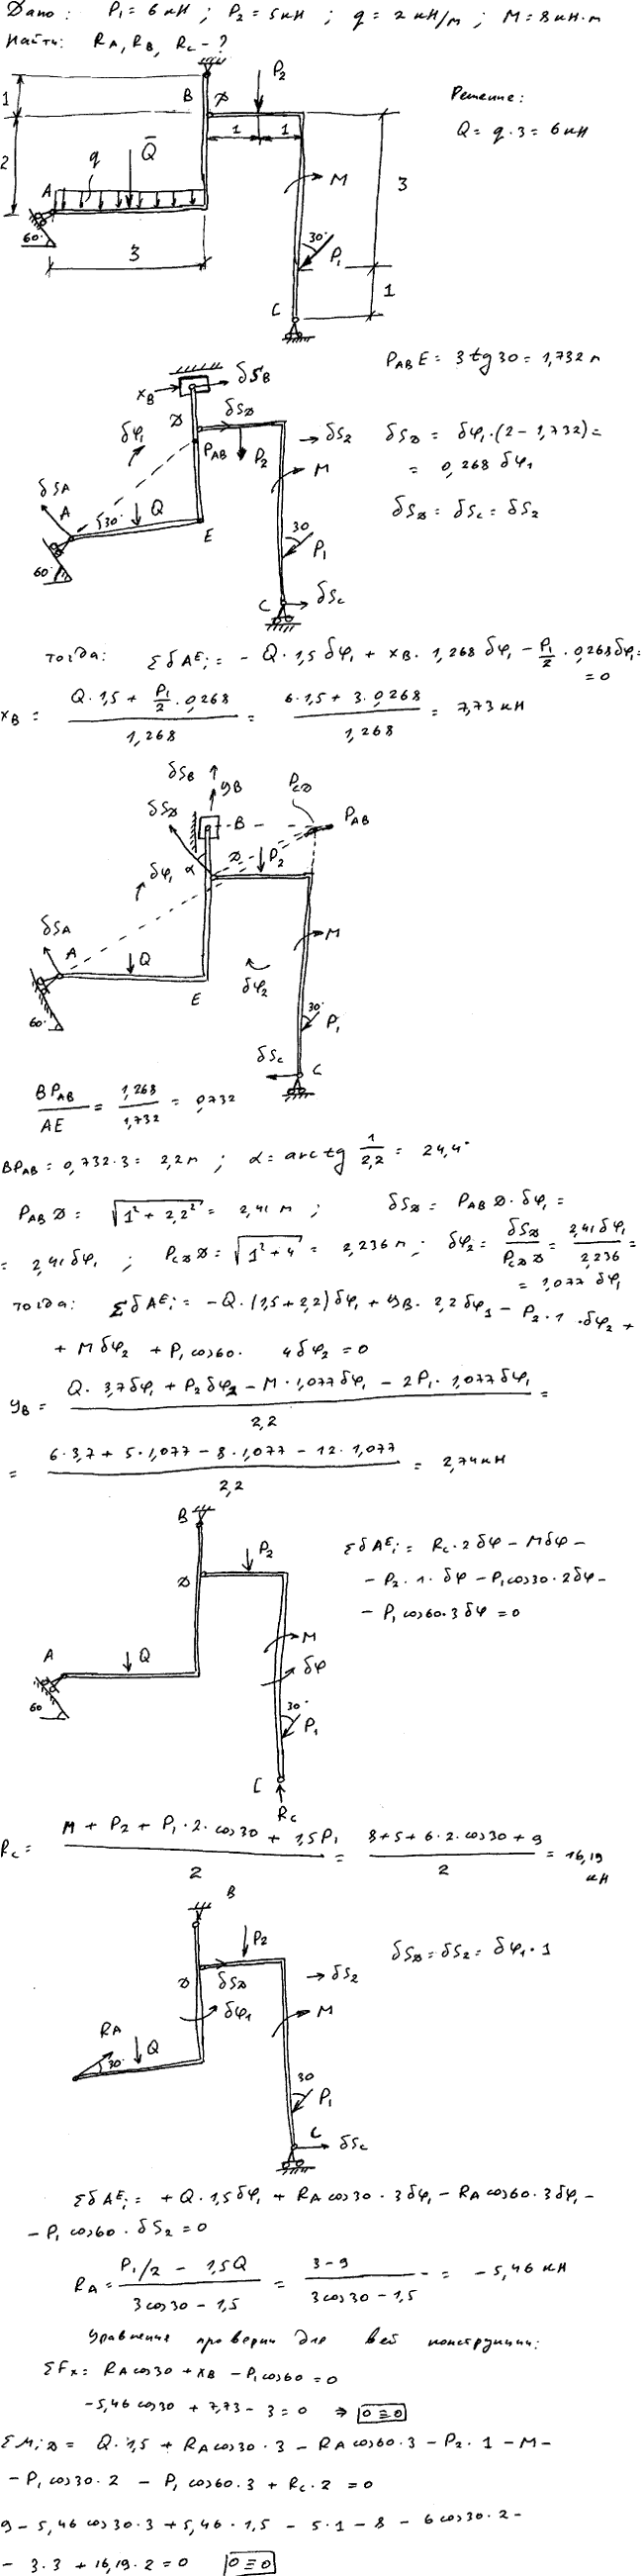 Дано: P₁ = 6 кН ; P₂ = 5 кН ; q = 2 кН/м ; M = 8 кН·м
Найти: R_A, R_B, R_C - ?
B D P₂
1
Решение:
Q = q · 3 = 6 кН
2 q Q̄ 1 1
M 3
A
60°
30° P₁
3
1
C
P_AB E = 3 tg 30 = 1,732 м
x_B δS_B
D δS_D
δφ₁ P_AB P₂ → δS₂
δS_D = δφ₁ · (2 - 1,732) =
= 0,268 δφ₁
M
δS_A
A 30° Q
E
δS_D = δS_C = δS₂
60°
30 P₁
C δS_C
тогда: ΣδA^E_i = - Q · 1,5 δφ₁ + x_B · 1,268 δφ₁ - P₁/2 · 0,268 δφ₁ = 0
x_B = (Q · 1,5 + P₁/2 · 0,268) / 1,268 = (6 · 1,5 + 3 · 0,268) / 1,268 = 7,73 кН
δS_B y_B
P_CD
δS_D B P_AB
α D P₂
δφ₁
δS_A
A Q M
E δφ₂
60° 30° P₁
δS_C C
BP_AB / AE = 1,268 / 1,732 = 0,732
BP_AB = 0,732 · 3 = 2,2 м ; α = arctg 1/2,2 = 24,4°
P_AB D = √(1² + 2,2²) = 2,41 м ; δS_D = P_AB D · δφ₁ =
= 2,41 δφ₁ ; P_CD D = √(1² + 4) = 2,236 м ; δφ₂ = δS_D / P_CD D = 2,41 δφ₁ / 2,236 =
= 1,077 δφ₁
тогда: ΣδA^E_i = - Q · (1,5 + 2,2) δφ₁ + y_B · 2,2 δφ₁ - P₂ · 1 · δφ₂ +
+ M δφ₂ + P₁ cos 60 · 4 δφ₂ = 0
y_B = (Q · 3,7 δφ₁ + P₂ δφ₂ - M · 1,077 δφ₁ - 2P₁ · 1,077 δφ₁) / 2,2 =
= (6 · 3,7 + 5 · 1,077 - 8 · 1,077 - 12 · 1,077) / 2,2 = 2,74 кН
B
D P₂
ΣδA^E_i = R_C · 2 δφ - M δφ -
- P₂ · 1 · δφ - P₁ cos 30 · 2 δφ -
- P₁ cos 60 · 3 δφ = 0
A Q M
δφ
60 30° P₁
C
R_C
R_C = (M + P₂ + P₁ · 2 · cos 30 + 1,5 P₁) / 2 = (8 + 5 + 6 · 2 · cos 30 + 9) / 2 = 16,19 кН
B
P₂
D δS_D → δS₂
δS_D = δS₂ = δφ₁ · 1
δφ₁ M
R_A Q
30°
30 P₁
C δS_C
ΣδA^E_i = + Q · 1,5 δφ₁ + R_A cos 30 · 3 δφ₁ - R_A cos 60 · 3 δφ₁ -
- P₁ cos 60 · δS₂ = 0
R_A = (P₁/2 - 1,5 Q) / (3 cos 30 - 1,5) = (3 - 9) / (3 cos 30 - 1,5) = - 5,46 кН
Уравнения проверки для всей конструкции:
ΣF_x = R_A cos 30 + x_B - P₁ cos 60 = 0
-5,46 cos 30 + 7,73 - 3 = 0 ⇒ 0 ≡ 0
ΣM_iD = Q · 1,5 + R_A cos 30 · 3 - R_A cos 60 · 3 - P₂ · 1 - M -
- P₁ cos 30 · 2 - P₁ cos 60 · 3 + R_C · 2 = 0
9 - 5,46 cos 30 · 3 + 5,46 · 1,5 - 5 · 1 - 8 - 6 cos 30 · 2 -
- 3 · 3 + 16,19 · 2 = 0 0 ≡ 0